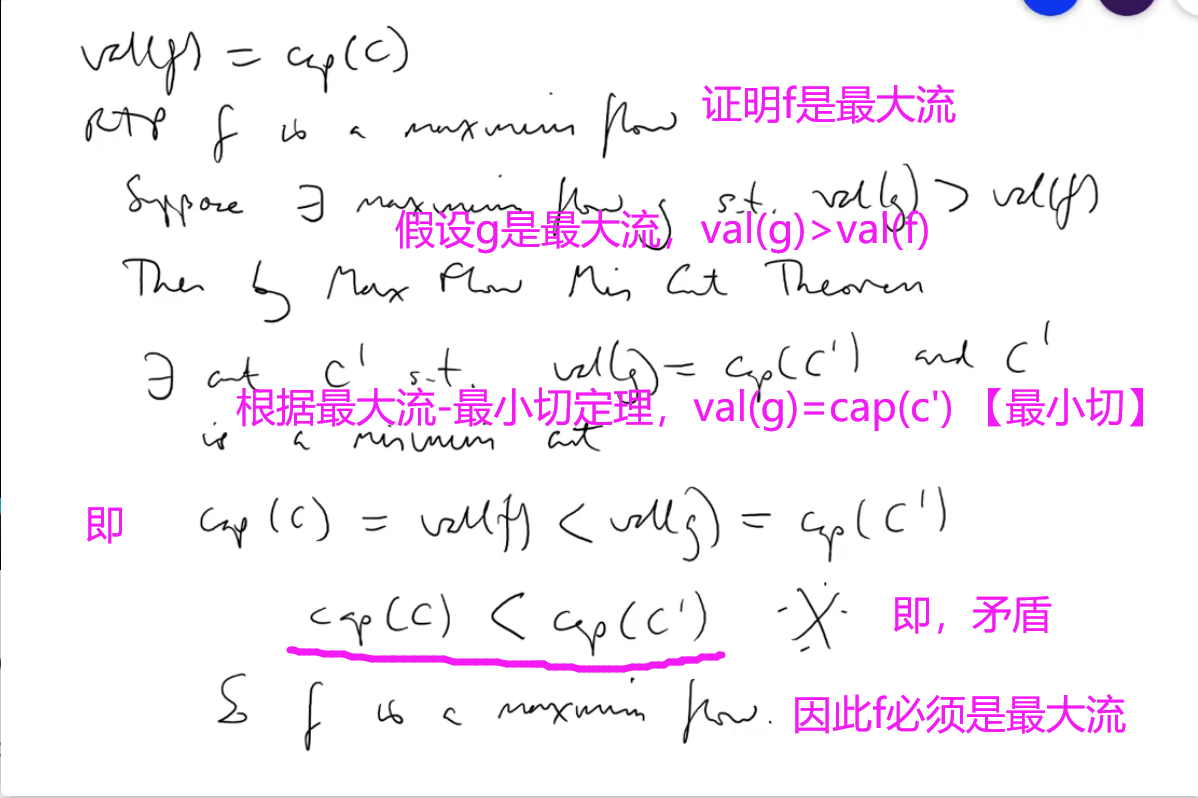 val(f) = cap(C)
RTP f is a maximum flow 证明f是最大流
Suppose ∃ maximum flow g s.t. val(g) > val(f)
假设g是最大流，val(g)>val(f)
Then by Max Flow Min Cut Theorem
∃ cut C' s.t. val(g) = cap(C') and C'
根据最大流-最小切定理，val(g)=cap(c')【最小切】
is a minimum cut
即 cap(C) = val(f) < val(g) = cap(C')
cap(C) < cap(C') 即，矛盾
So f is a maximum flow. 因此f必须是最大流